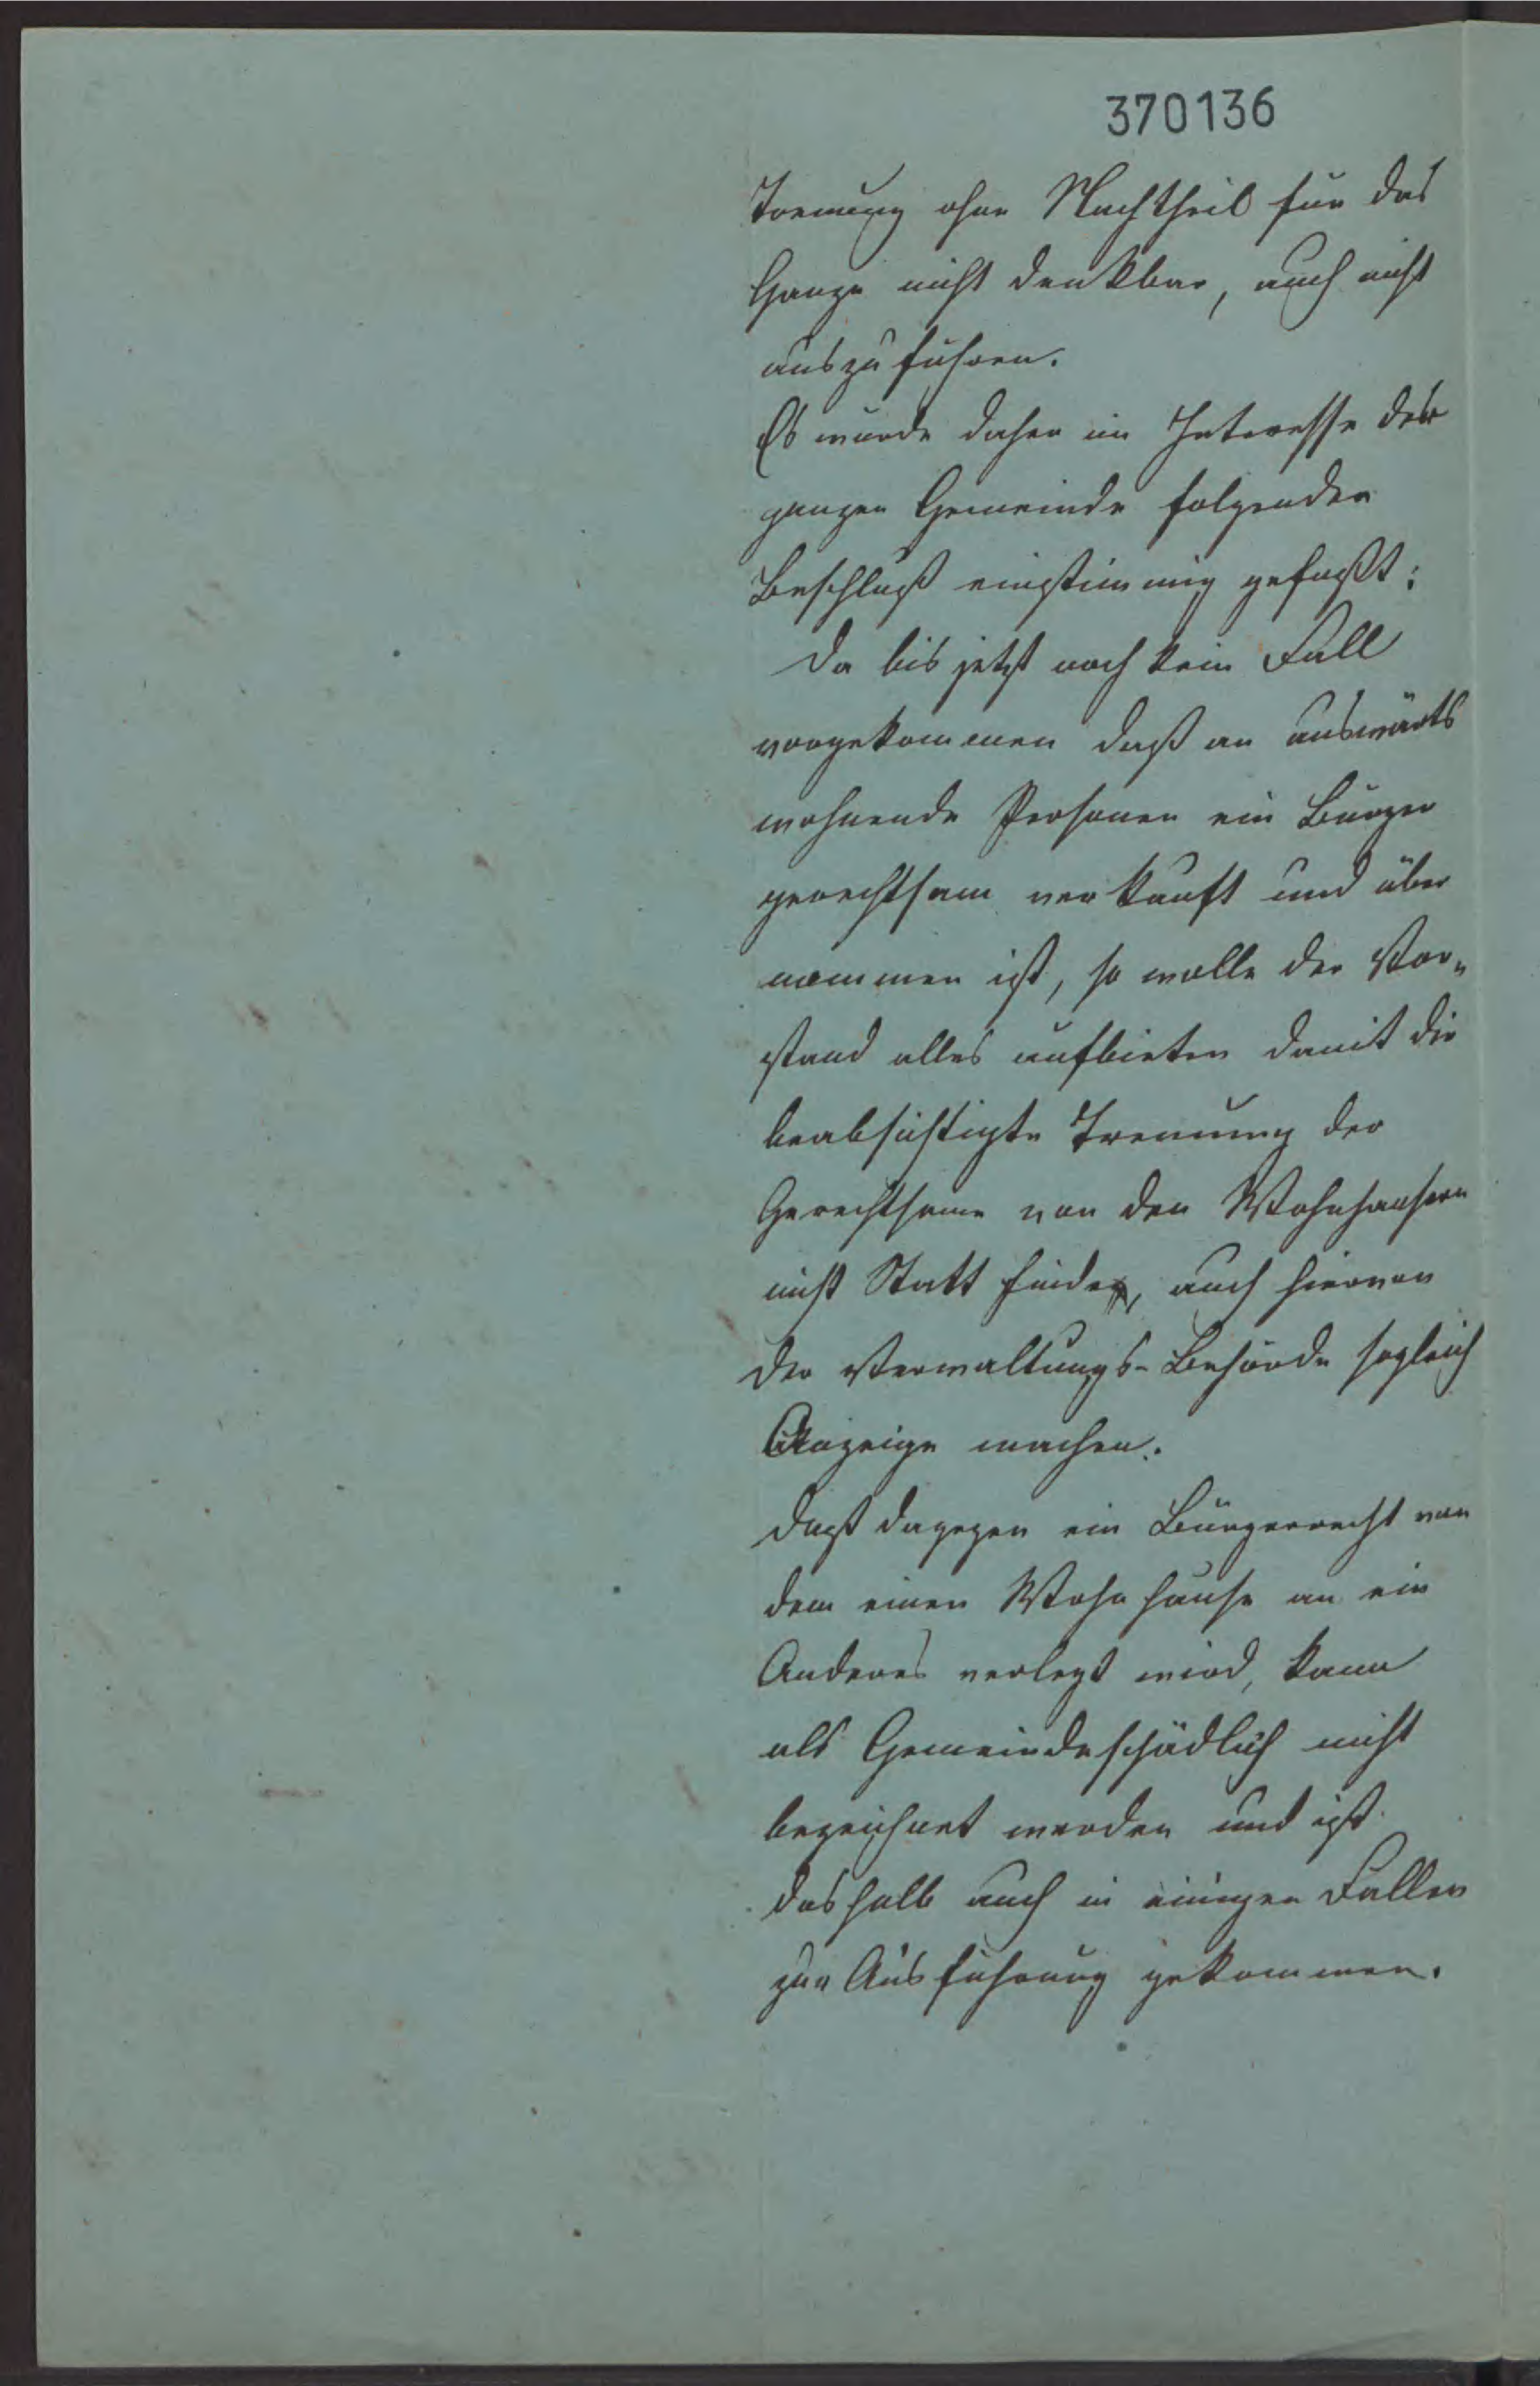 370136
Trennung ohne Nachtheil für das
Ganze nicht denkbar, auch nicht
auszuführen.
Es wurde daher im Interesse der
ganzen Gemeinde folgender
Beschluß einstimmig gefaßt:
Da bis jetzt noch kein Fall
vorgekommen daß an auswärts
wohnende Personen ein Bürger
gerechtsam verkauft und über
nommen ist, so wolle der Vor-
stand alles aufbieten damit die
beabsichtigte Trennung der
Gerechtsame von den Wohnhausern
nicht Statt finde, auch hiervon
der Verwaltungs-Behörde sogleich
Anzeige machen.
Daß dagegen ein Bürgerrecht von
dem einen Wohnhause an ein
Anderes verlegt wird, kann
als Gemeindeschädlich nicht
bezeichnet werden und ist
deshalb auch in einigen Fallen
zur Ausführung gekommen.